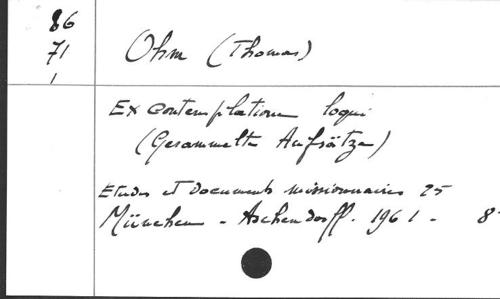 86
71
1
Ohm (Thomas)
Ex Contemplatione loqui
(Gesammelte Aufsätze)
Etudes et Documents missionnaires 25
München - Aschendorff. 1961 - 8°